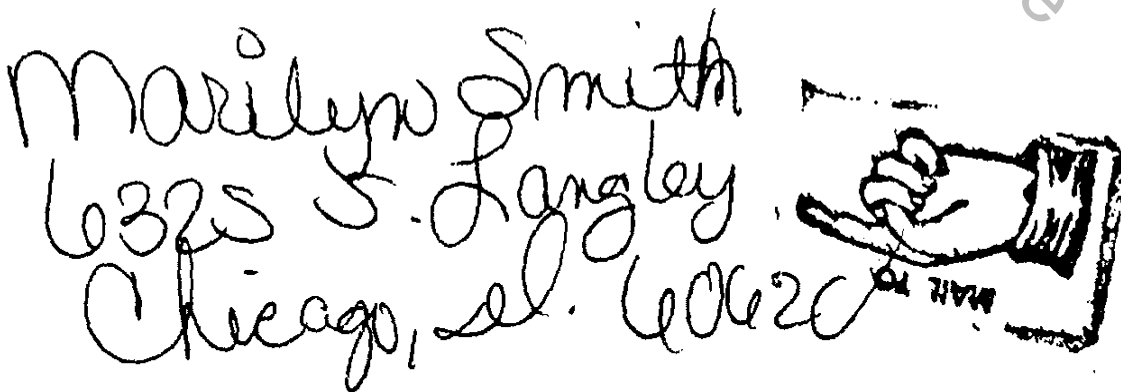 Marilyn Smith
6325 S. Langley
Chicago, Il. 60620
MAIL TO